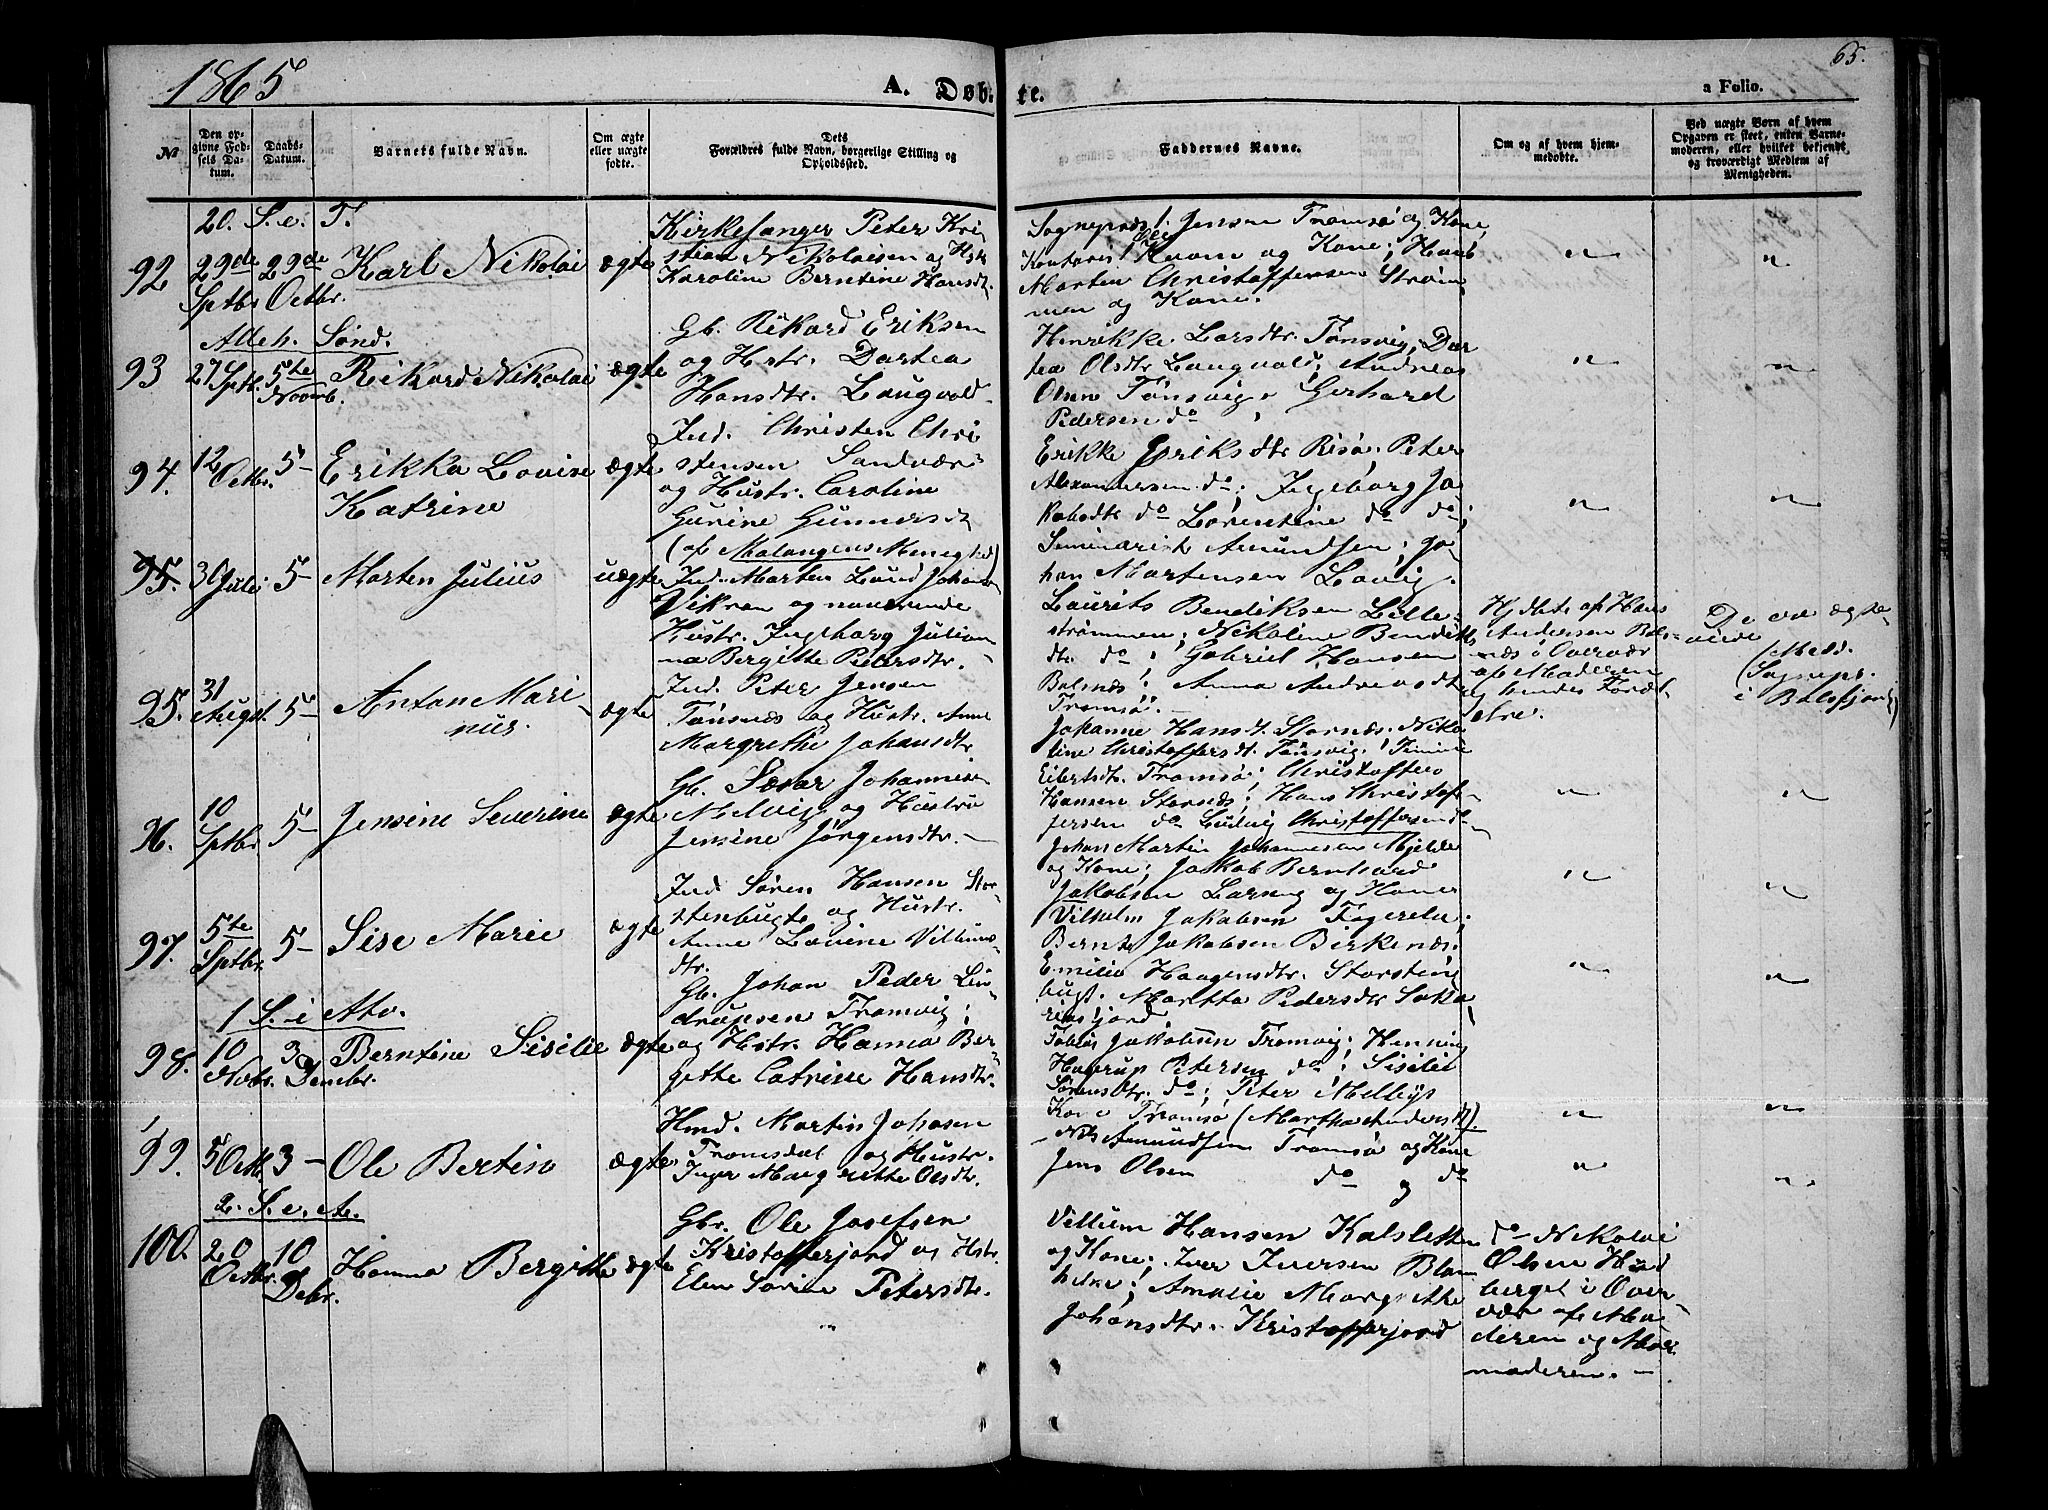 1865
A. Døb-
te.
a Folio.
65.
№
Den op-
givne Fød-
sels Da-
tum.
Daabs-
Datum.
Barnets fulde Navn.
Om ægte
eller uægte
fødte.
Dets
Forældres fulde Navn, borgerlige Stilling og
Opholdssted.
Faddernes Navne.
Om og af hvem hjem-
medøbte.
Ved uægte Børn af hvem
Opgaven er skeet, enten Barne-
moderen, eller hvilket bekjendt
og troværdigt Medlem af
Menigheden.
20. S. e. T.
92
29de
Sptbr
29de
Octbr.
Karl Nikolai
ægte
Kirkesanger Peter Kri
stian Nikolaisen og Hstr
Karoline Berntine Hansdt.
Jensen Tromsø og Kone,
Kvam og Kone; Hans
Morten Christoffersen Strøm
men og Kone.
"
"
Alleh. Sönd.
93
27 Sptb.
5te
Novmb.
Rikard Nikolai
ægte
Gb. Rikard Eriksen
og Hstr. Dortea
Hansdtr. Laugvold
Henrikke Larsdtr. Tønsvig, Dor
tea Olsdtr Laugvold; Andreas
Olsen Tønsvig, Gerhard
Pedersen do
"
"
94.
12
Octbr.
5-
Erikka Lovise
Katrine
ægte
Ind. Christen Chri
stensen Sandvær
og Hustr. Caroline
Gurine Gunnersdt
Erikke Eriksdtr Risø; Peter
Alexandersen do; Ingeborg Ja
kobsdtr do Lorentine do do;
Seminarist Amundsen; Jo
han Martensen Lavig.
"
"
95.
30 Juli
5-
Morten Julius
uægte
(af Malangens Menighed)
Ind. Morten Lund Johans
Vikran og nuværende
Hustr. Ingeborg Julian
na Bergitte Pedersdtr.
Laurits Bendiksen Lille-
strømmen; Nikoline Bendiks
dtr. do; Gabriel Hansen
Balsnæs; Anna Andreasdt
Tromsø.-
Hjdbt. af Hans
Andersen Bals-
næs i Overvær
af Moderen
og hendes Foræl-
dre.
De ere ægte-
viede
(Medd.
Sognepr.
i Balsfjord)
95.
31
August.
5-
Anton Mari-
nus.
ægte
Ind. Peter Jensen
Tønsnæs og Hustr. Anne
Margrethe Johansdtr
Johanne Hansdt. Stornæs, Niko
line Christoffersdt. Tønsvig;
Eibertsdtr. Tromsø; Christoffer
Hansen Stornæs; Hans Christof-
fersen do Ludvig Christoffersen do
"
"
96.
10
Sptbr
5-
Jensine Severine
ægte
Gb. Johannesen
og Hustru
Jensine Jørgensdtr.-
Johan Martin Johannesen Mjelde
og Kone; Jakob Bernhard
Jakobsen og Kone
Vilhelm Jakobsen
"
"
97.
5te
Sptbr.
5-
Sise Marie
ægte
Ind Søren Hansen Stor
stenbugt og Hustr.
Anne Lovine Villums-
dtr.
Bernt Jakobsen Birkenæs;
Emilie Haagensdtr. Storsten
bugt. Martha Pedersdtr
"
"
1 S. i Adv.
98.
10
Nobr.
3
Decmbr.
Berntine Sisilie
ægte
Gb. Johan Peder Lin-
drupsen Tromvig;
og Hstr. Hanna Ber-
gitte Catrine Hansdtr.
Tobias Jakobsen Tromvig; Henning
Hagerup Petersen do; Sisilie
Sørensdtr. do; Peter Melbys
Kone Tromsø (Martha Andersdt).
"
"
99.
5 Octb.
3-
Ole Bertin
ægte
Hmd. Martin Johasen
Tromsdal og Hustr.
Inger Margrethe Olsdtr.
Nils Amundsen Tromsø og Kone
Jens Olsen do og do
"
"
2. S. e. A.
100.
20
Octbr.
10
Debr.
Hanna Bergitte
ægte
Gbr. Ole Josefsen
Kristofferjord og Hstr.
Elen Sorine Petersdtr.
"
Villum Hansen Kalsletten
og Kone; Iver Iversen
Amalie Margrethe
Johansdtr. Kristofferjord
do Nikolai
Olsen
berget i Over-
vær af Mo
deren og Mor-
moderen.-